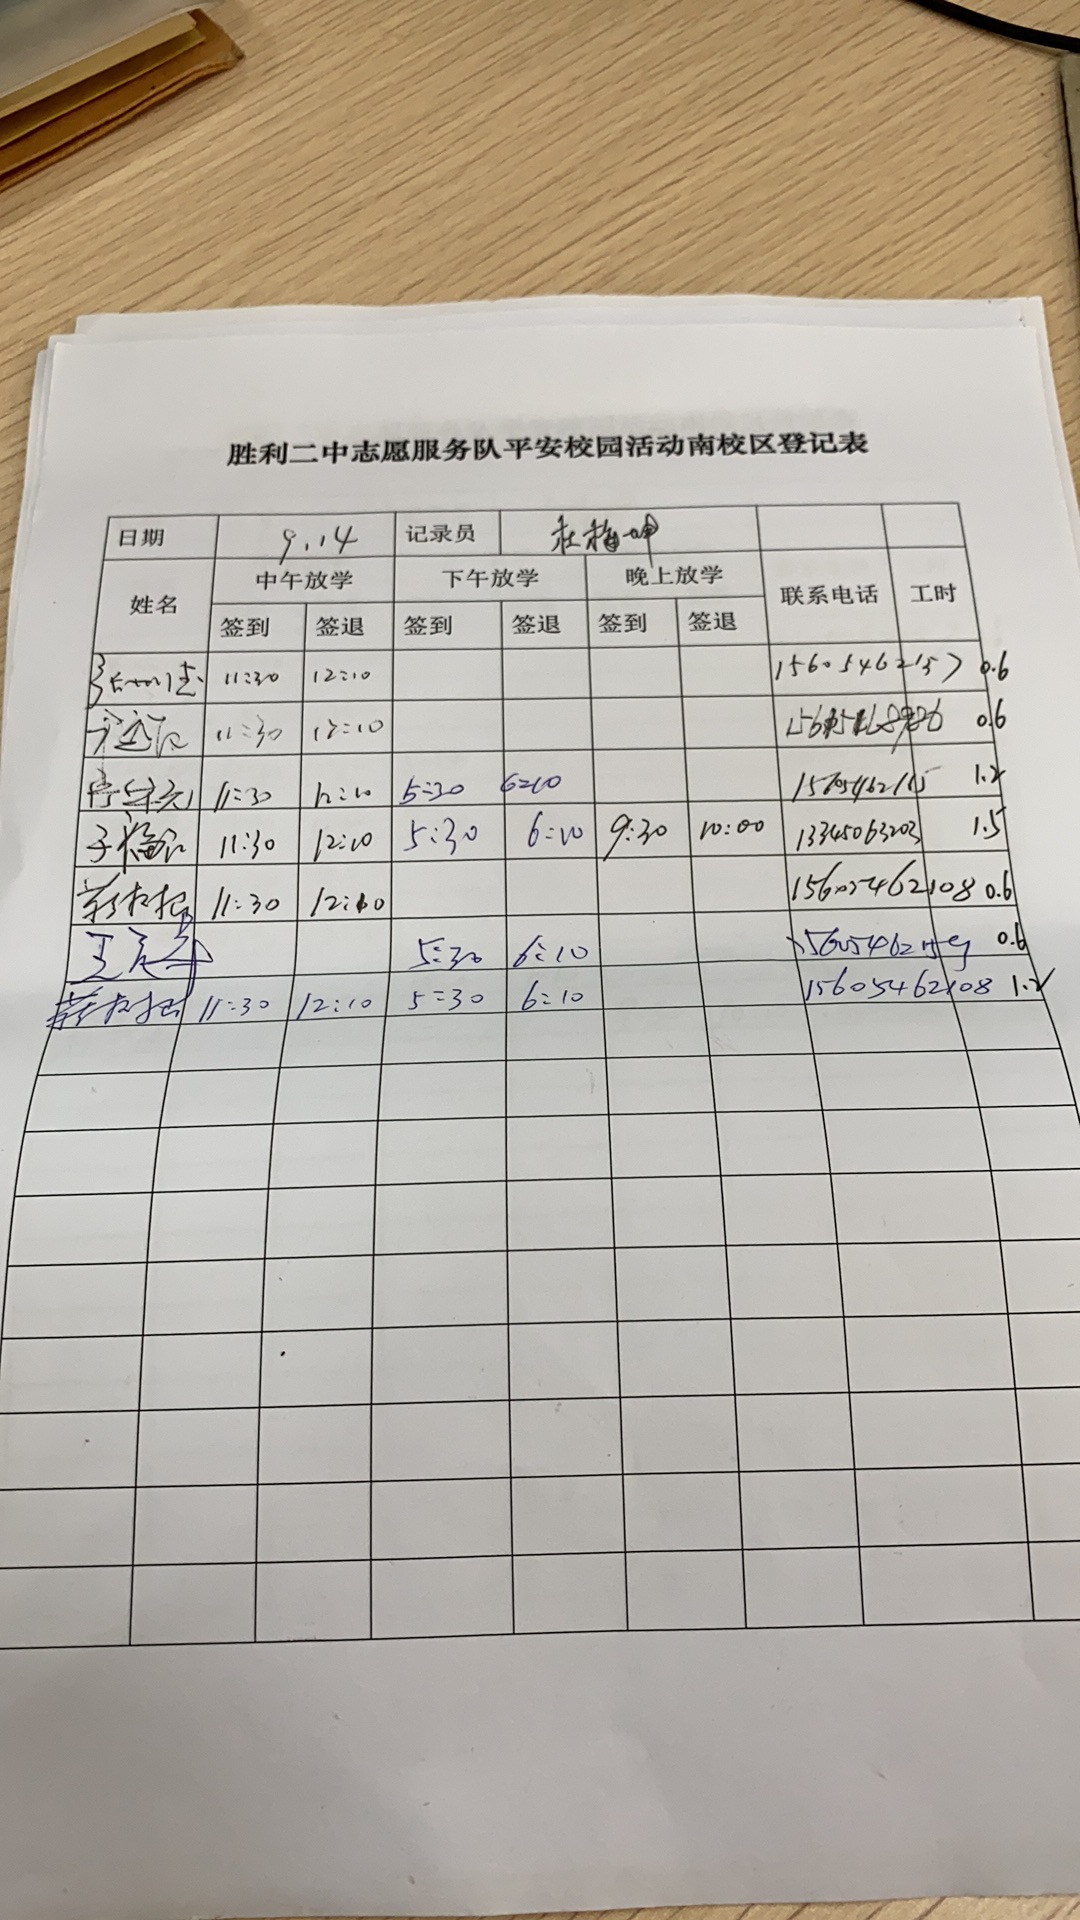 胜利二中志愿服务队平安校园活动南校区登记表
日期 9.14 记录员 杜梅坤
姓名 中午放学 下午放学 晚上放学 联系电话 工时
签到 签退 签到 签退 签到 签退
11:30 12:10 15605462157 0.6
11:30 12:10 0.6
11:30 12:10 5:30 6:10 1.2
11:30 12:10 5:30 6:10 9:30 10:00 13345063203 1.5
11:30 12:10 15605462108 0.6
5:30 6:10 0.6
11:30 12:10 5:30 6:10 15605462108 1.2